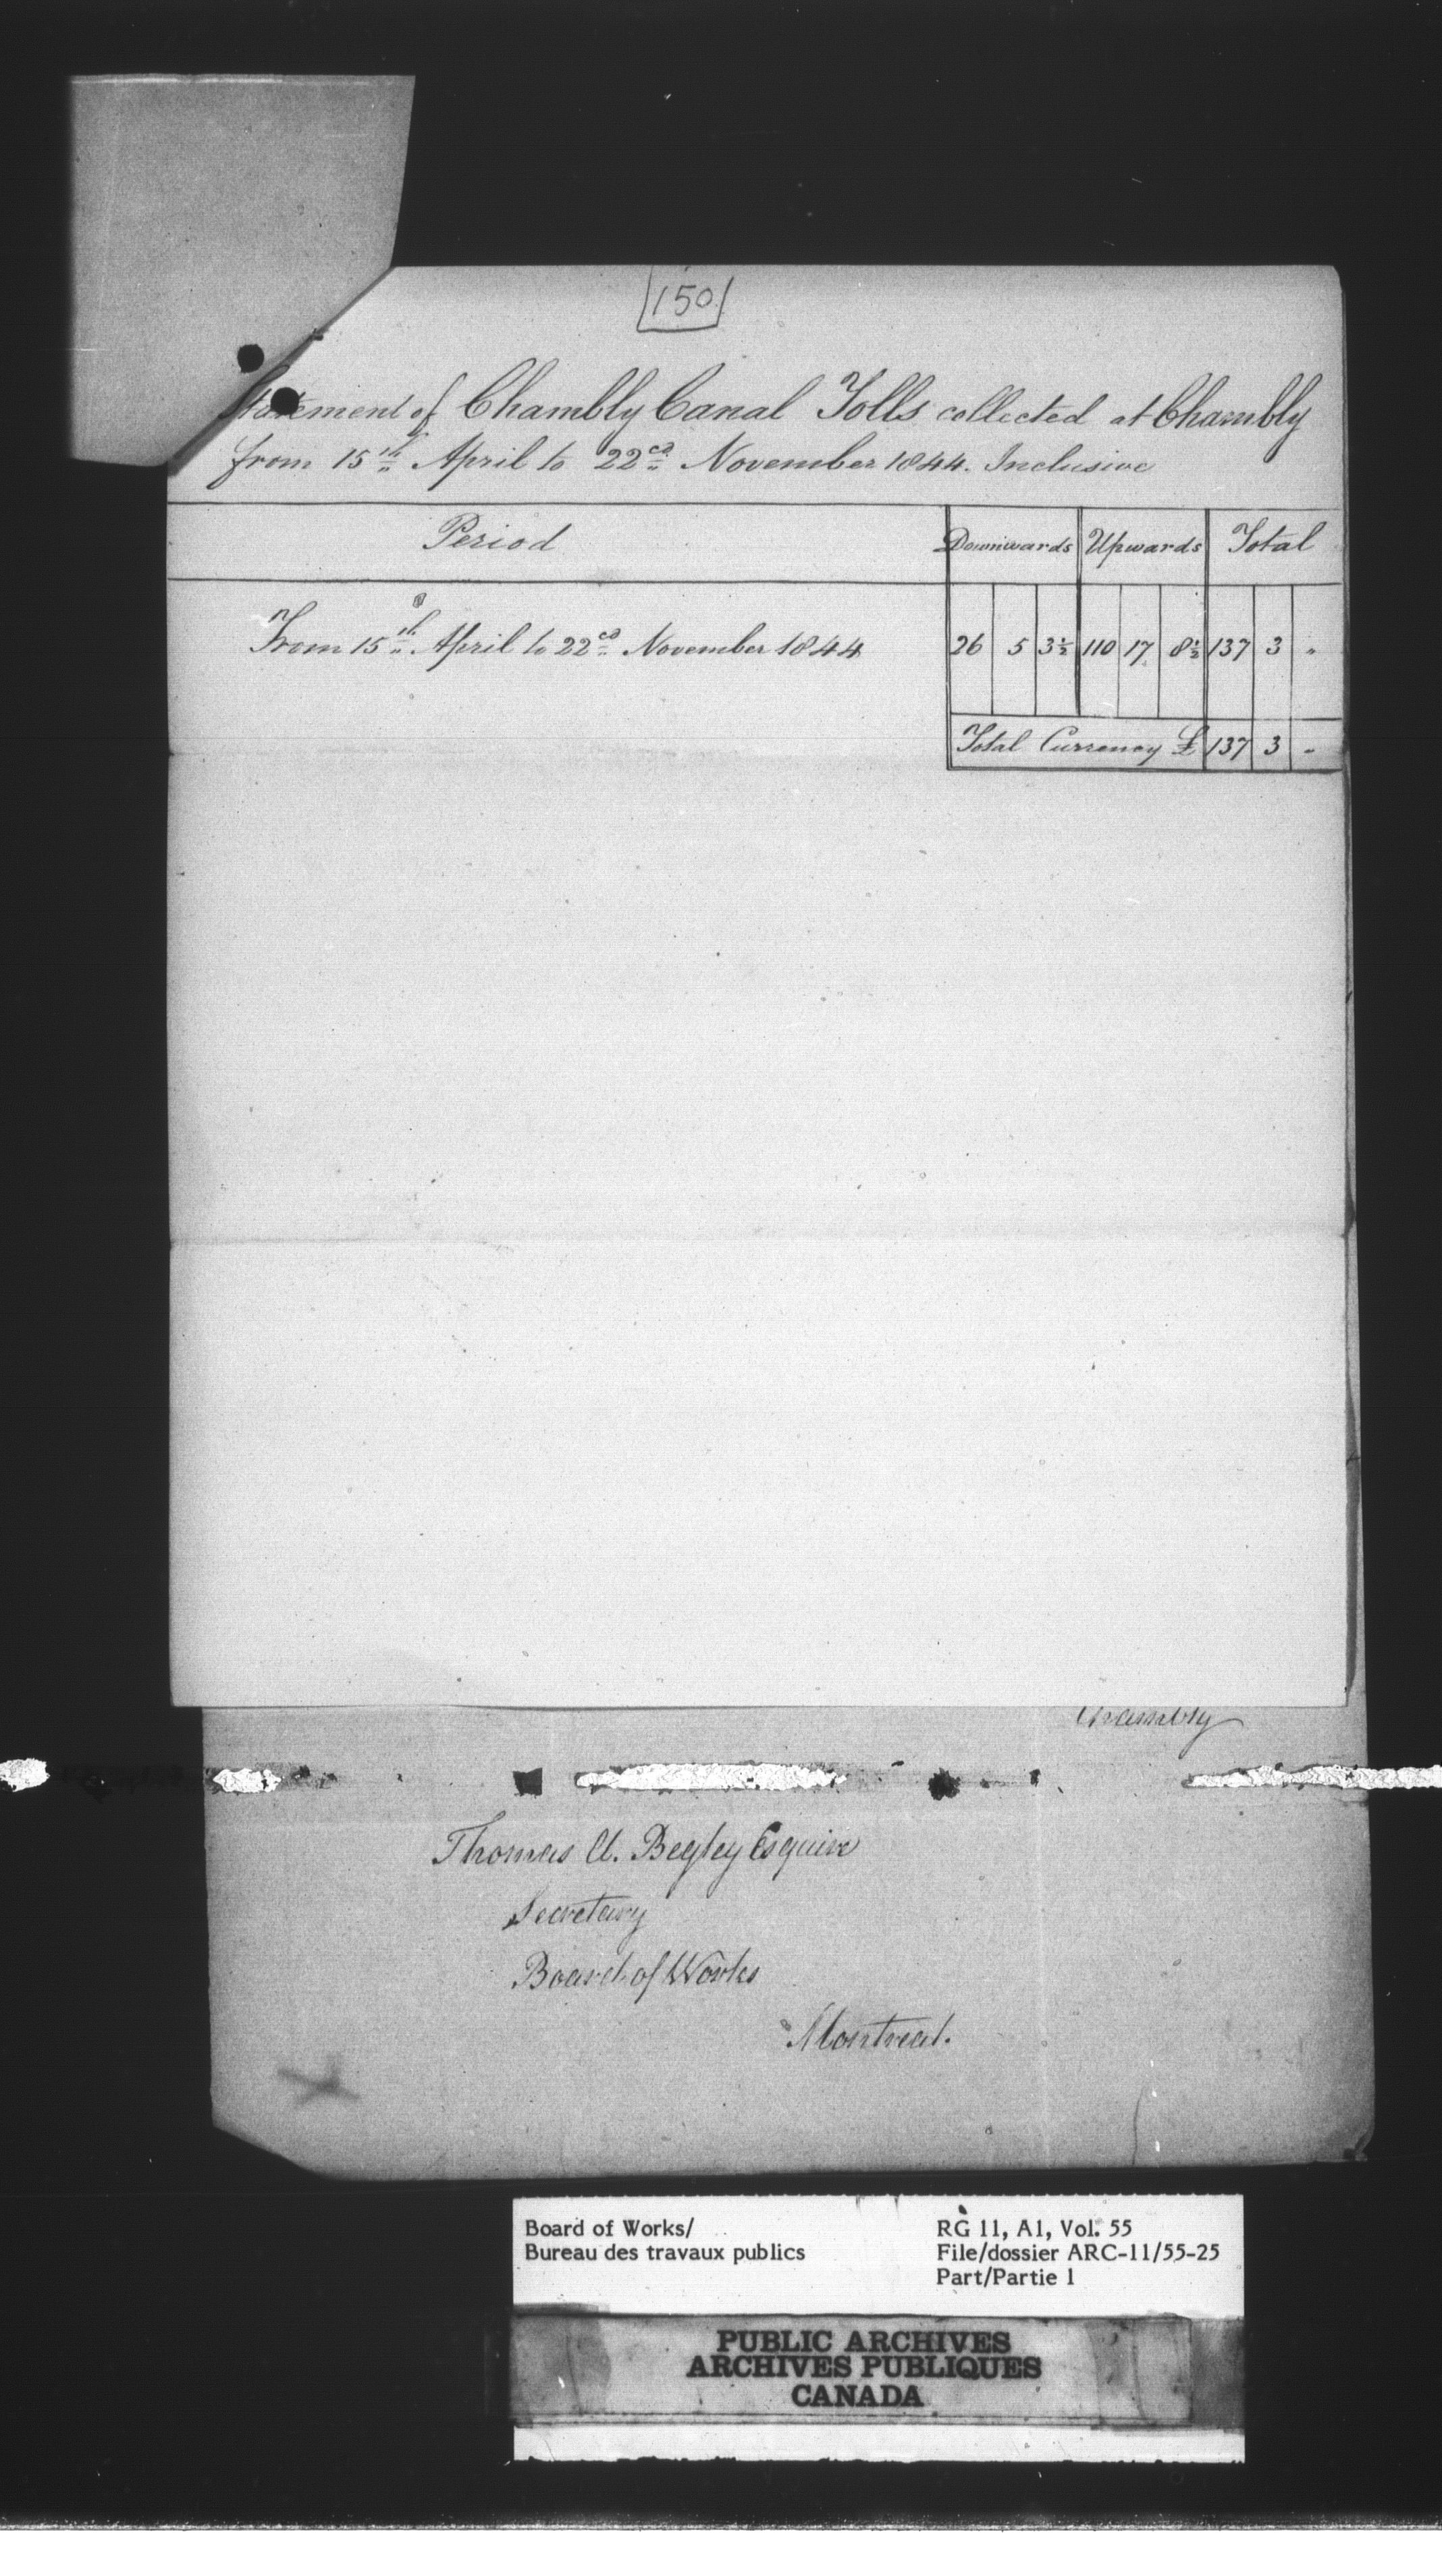 150
Statement of Chambly Canal Tolls collected at Chambly
from 15th April to 22cd November 1844. Inclusive
Period Downwards Upwards Total
From 15th April to 22cd November 1844 26 5 3½ 110 17 8½ 137 3 "
Total Currency £ 137 3 "
Chambly
Thomas A. Begley Esquire
Secretary
Board of Works
Montreal.
Board of Works/
Bureau des travaux publics
RG 11, A1, Vol. 55
File/dossier ARC-11/55-25
Part/Partie 1
PUBLIC ARCHIVES
ARCHIVES PUBLIQUES
CANADA